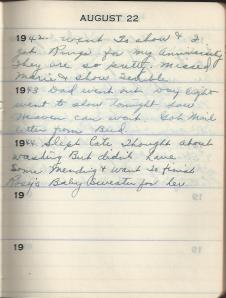 AUGUST 22
1942. Went To show & I
got Rings for my Anniversary
They are so pretty. Missed
Marie & show Terrible.
1943 Dad went out
went to show Tonight
Heaven can wait Got Mail
letter from Bud.
1944. Slept Late Thought about
washing But didn't have
Some Mending & Want To finish
Rosy's Baby Sweater for her
19
19